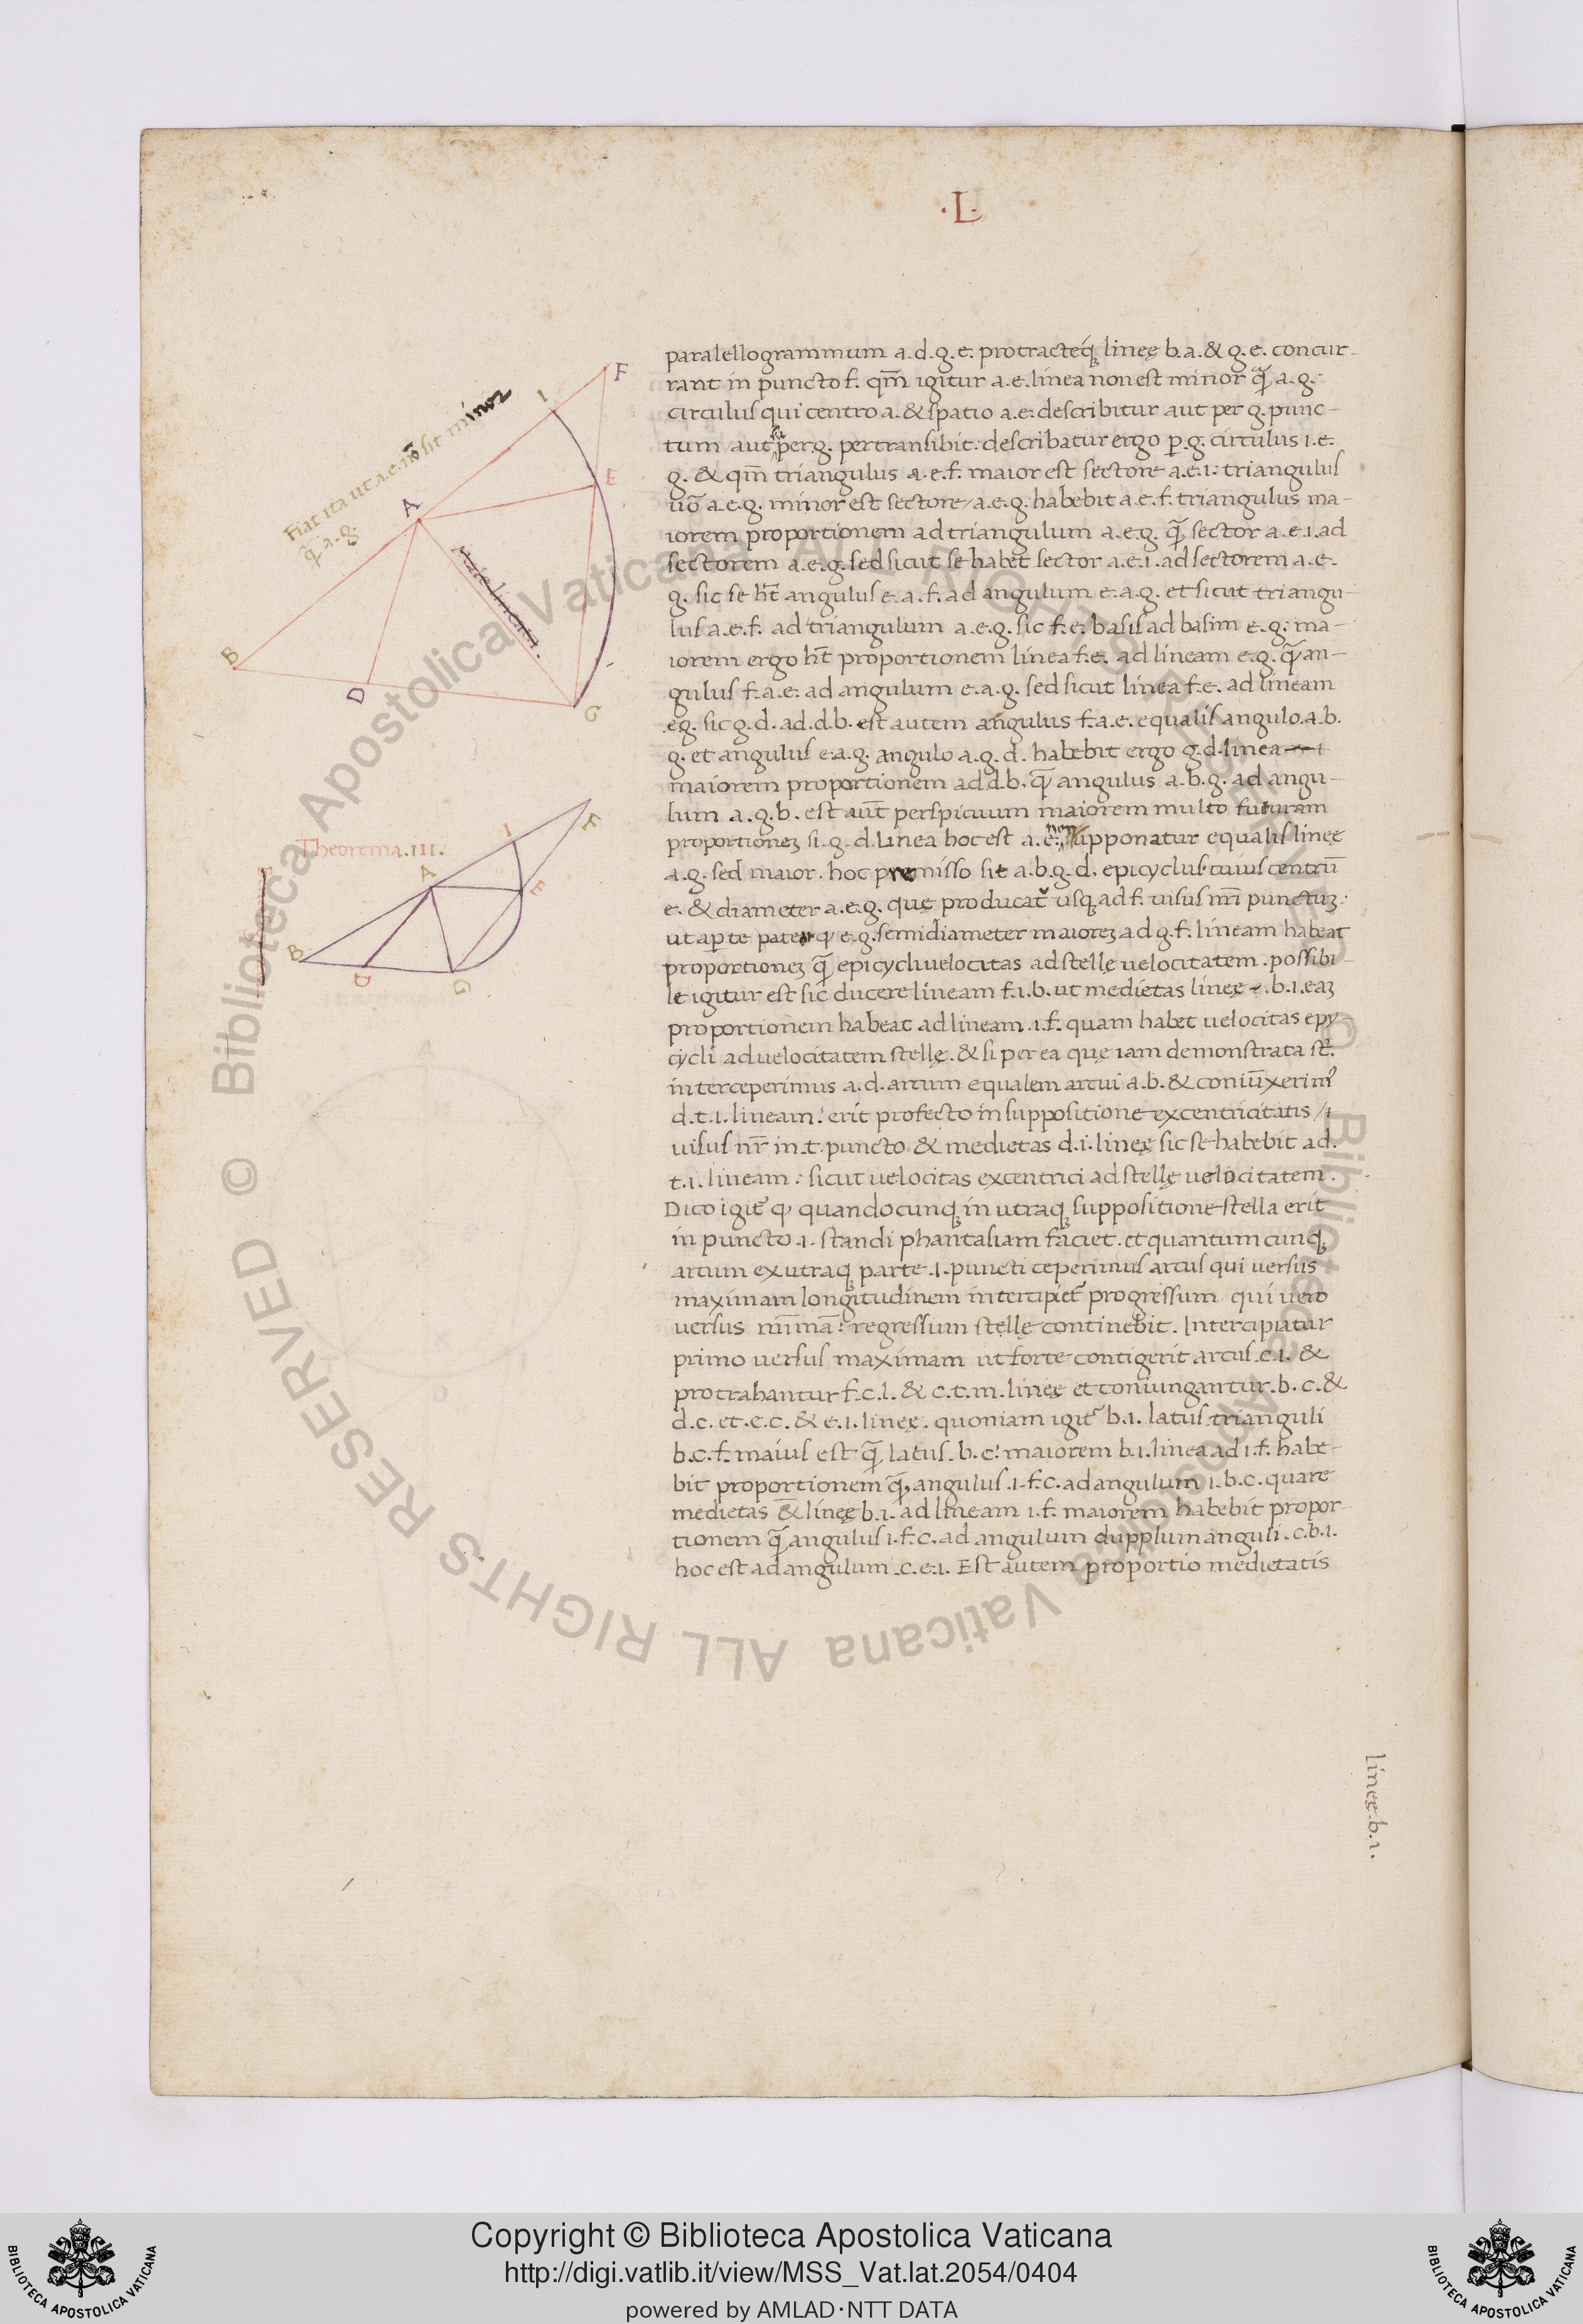 ·L·
paralellogrammum a.d.g.e. protracteq́ʒ lineę b.a. & g.e. concur-
rant in puncto f. qm̄ igitur a.e. linea non est minor q̄ a.g.
circulus qui centro a. & spatio a.e. describitur aut per g. punc-
tum / aut sup̱er g. pertransibit: describatur ergo p̱.g. circulus i.e.
g. & qm̄ triangulus a.e.f. maior est sectore a.e.i: triangulus
uō a.e.g. minor est sectore / a.e.g. habebit a.e.f. triangulus ma-
iorem proportionem ad triangulum a.e.g. q̄ sector a.e.i. ad
sectorem a.e.g. sed sicut se habet sector a.e.i. ad sectorem a.e.
g. sic se ht̄ angulus e.a.f. ad angulum e.a.g. et sicut triangu-
lus a.e.f. ad triangulum a.e.g. sic f.e. basis ad basim e.g. ma-
iorem ergo ht̄ proportionem linea f.e. ad lineam e.g. q̄ an-
gulus f.a.e. ad angulum e.a.g. sed sicut linea f.e. ad lineam
e.g. sic g.d. ad .d.b. est autem angulus f.a.e. equalis angulo .a.b.
g. et angulus e.a.g. angulo a.g.d. habebit ergo g.d. linea
maiorem proportionem ad d.b. q̄ angulus a.b.g. ad angu-
lum a.g.b. est aut̄ perspicuum maiorem multo futuram
proportioneʒ si .g.d. Linea hoc est a.e. non supponatur equalis lineę
a.g. sed maior. hoc premisso sit a.b.g.d. epicyclus cuius centrū
e. & diameter a.e.g. quę producat᷑ usqʒ ad f. uisus nr̄i punctuʒ:
ut ap̱te pateat qꝫ e.g. semidiameter maioreʒ ad g.f. lineam habeat
proportioneʒ q̄ epicycli uelocitas ad stellę uelocitatem. possibi-
le igitur est sic ducere lineam f.i.b. ut medietas lineę .b.i. eaʒ
proportionem habeat ad lineam .i.f. quam habet uelocitas epy-
cycli ad uelocitatem stellę. & si per ea quę iam demonstrata st̄.
interceperimus a.d. arcum equalem arcui a.b. & coniūxerim᷒
d.t.i. lineam: erit profecto in suppositione excentricitatis /
uisus nr̄ in .t. puncto & medietas d.i. lineę sic se habebit ad.
t.i. lineam: sicut uelocitas excentrici ad stellę uelocitatem.
Dico igit᷑ qꝫ quandocunqʒ in utraqʒ suppositione stella erit
in puncto .i. standi phantasiam faciet. et quantumcunqʒ
arcum ex utraqʒ parte .i. puncti ceperimus arcus qui uersus
maximam longitudinem intercipiet᷑ progressum qui uero
uersus mīmā: regressum stellę continebit. Intercipiatur
primo uersus maximam ut forte contigerit arcus .c.i. &
protrahantur f.c.l. & c.t.m. lineę et coniungantur .b.c. &
d.c. et .e.c. & e.i. lineę. quoniam igit᷑ b.i. latus trianguli
b.c.f. maius est q̄ latus .b.c: maiorem b.i. linea ad i.f. habe-
bit proportionem q̄ angulus .i.f.c. ad angulum i.b.c. quare
medietas & lineę b.i. ad lineam i.f. maiorem habebit propor-
tionem q̄ angulus i.f.c. ad angulum dupplum anguli .c.b.i.
hoc est ad angulum .c.e.i. Est autem proportio medietatis
lineę.b.i.
Fiat ita ut a.e. nō sit minor
q̄ a.g.
F
I
E
A
B
D
G
Theorema.III.
F
I
A
E
B
D
G
© Biblioteca Apostolica Vaticana ALL RIGHTS RESERVED
© Biblioteca Apostolica Vaticana ALL RIGHTS RESERVED
BIBLIOTECA APOSTOLICA VATICANA
Copyright © Biblioteca Apostolica Vaticana
http://digi.vatlib.it/view/MSS_Vat.lat.2054/0404
powered by AMLAD·NTT DATA
BIBLIOTECA APOSTOLICA VATICANA